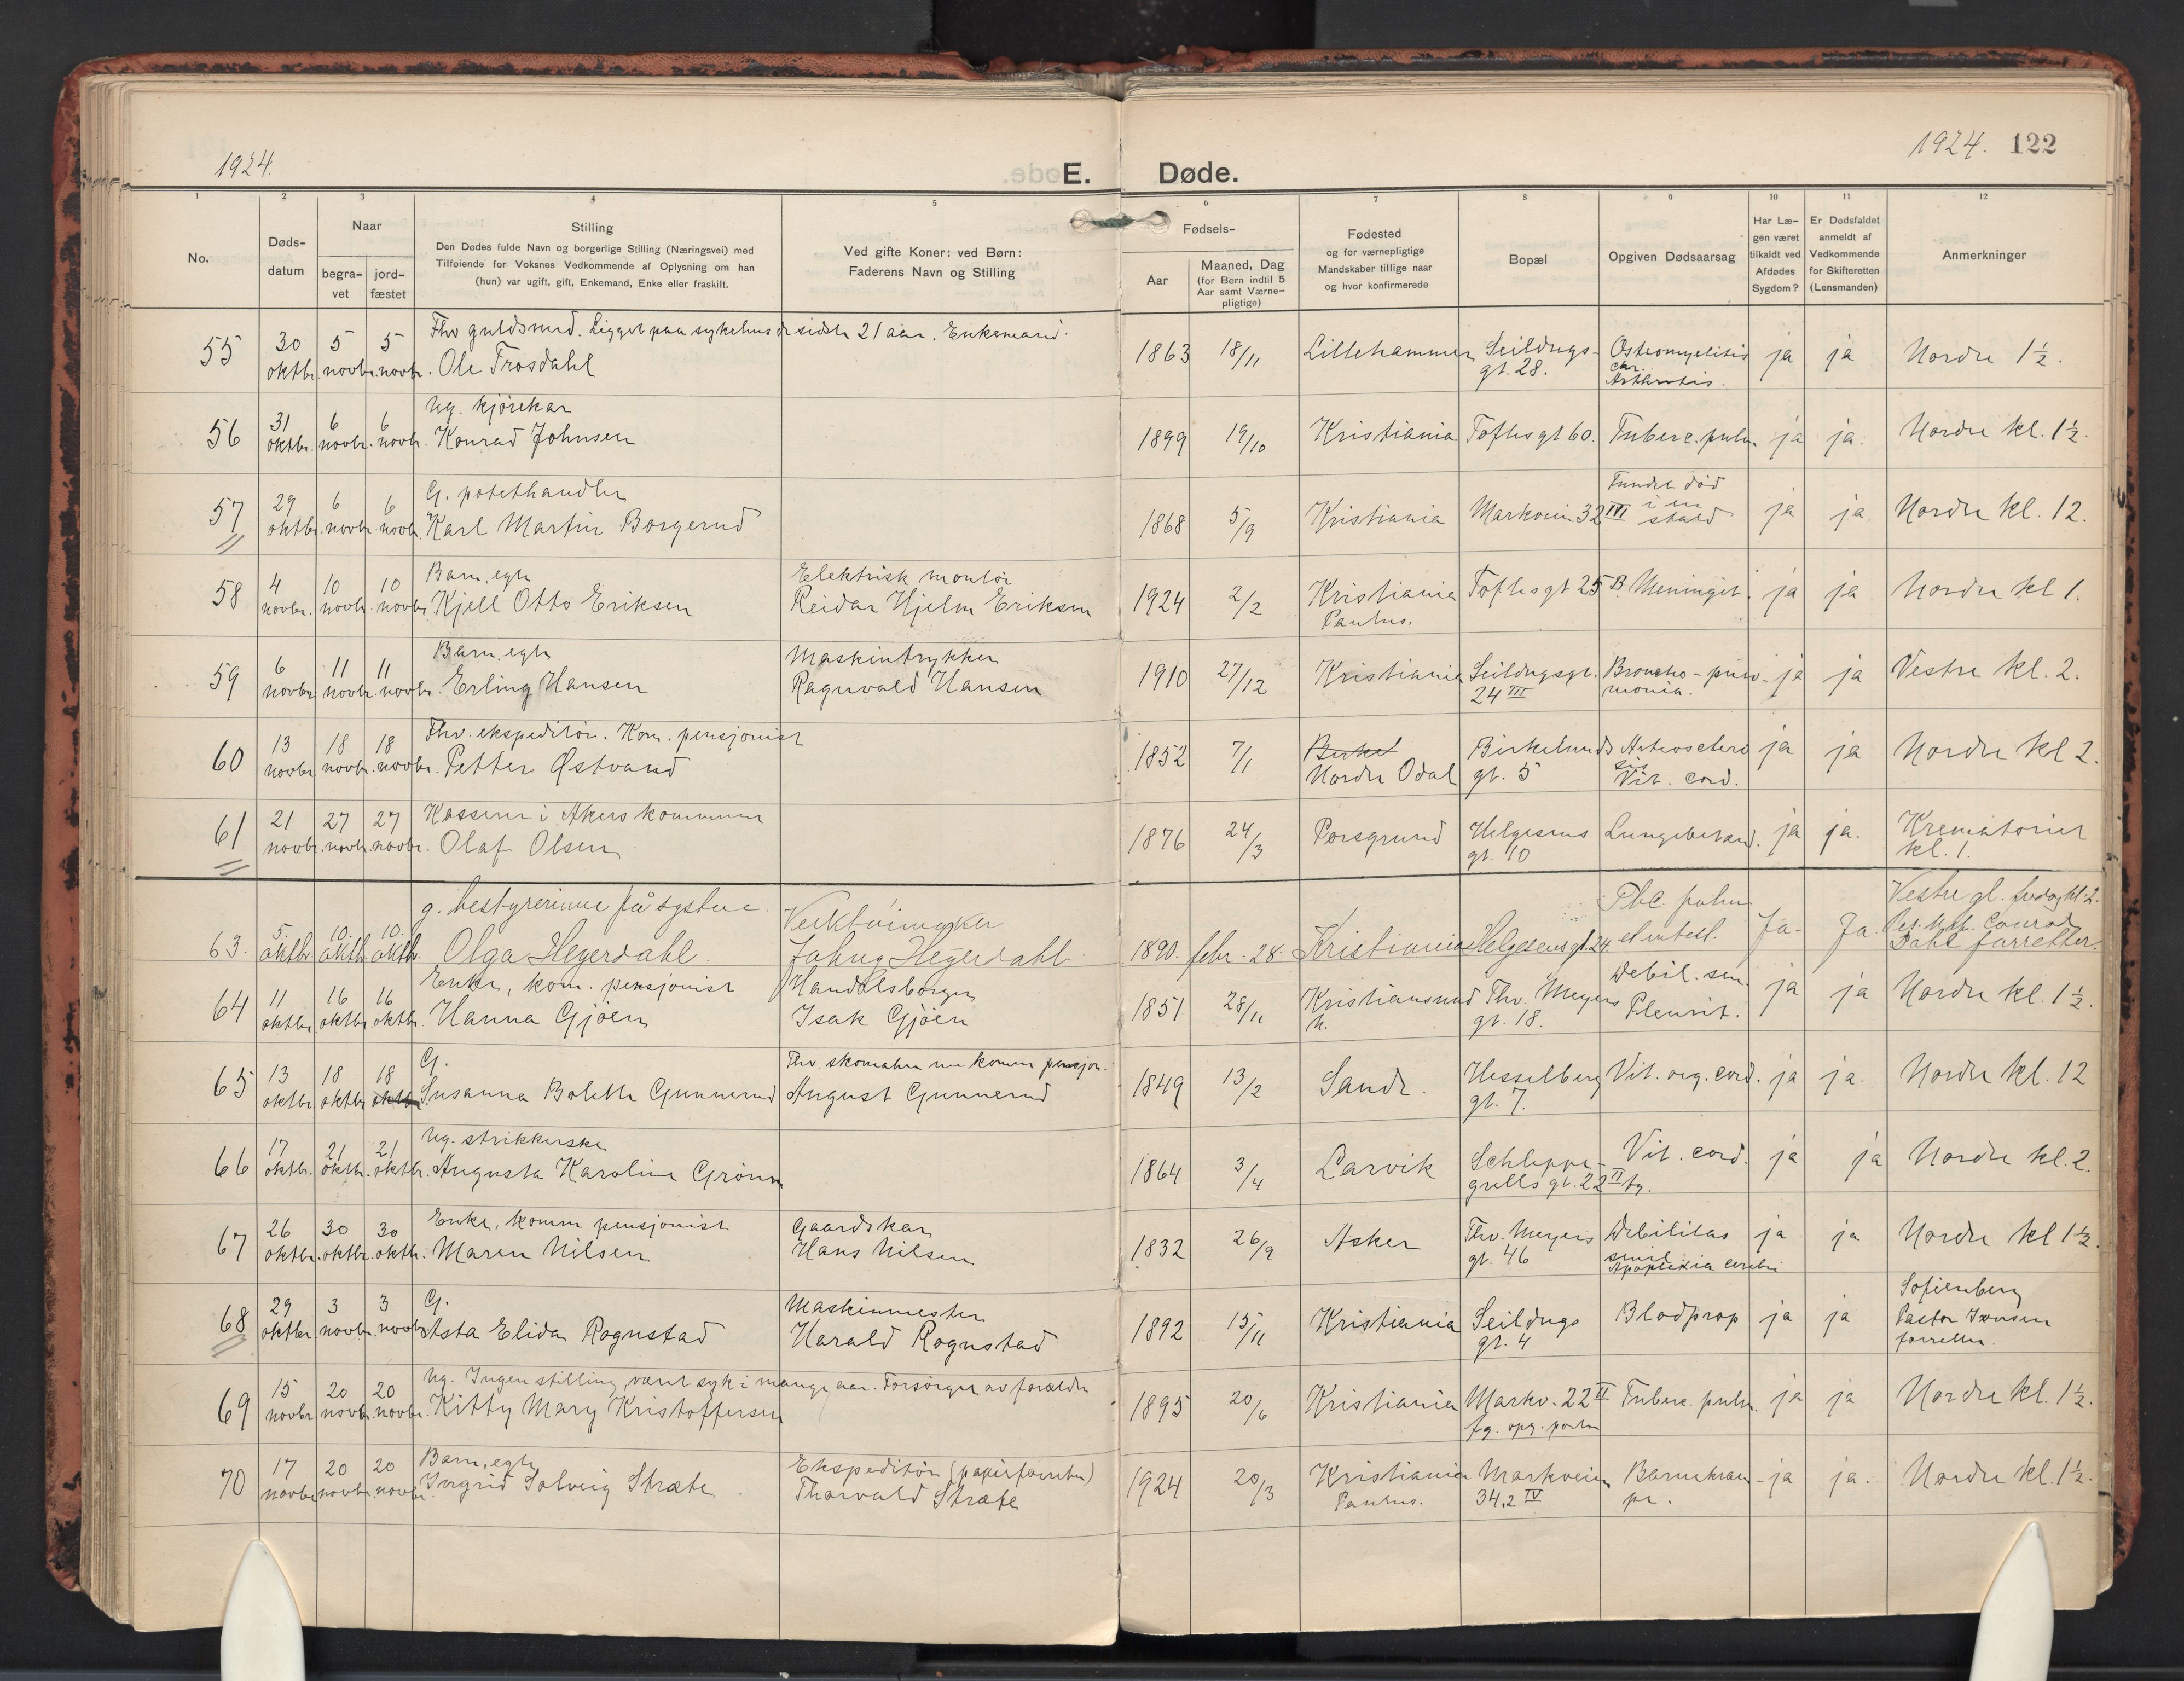 1924.
1924. 122
E. Døde.
1 2 3 4 5 6 7 8 9 10 11 12
No.
Døds-
datum
Naar
begra-
vet
jord-
fæstet
Stilling
Den Dødes fulde Navn og borgerlige Stilling (Næringsvei) med
Tilføiende for Voksnes Vedkommende af Oplysning om han
(hun) var ugift, gift, Enkemand, Enke eller fraskilt.
Ved gifte Koner: ved Børn:
Faderens Navn og Stilling
Fødsels-
Aar
Maaned, Dag
(for Børn indtil 5
Aar samt Værne-
pligtige)
Fødested
og for værnepligtige
Mandskaber tillige naar
og hvor konfirmerede
Bopæl
Opgiven Dødsaarsag
Har Læ-
gen været
tilkaldt ved
Afdødes
Sygdom?
Er Dødsfaldet
anmeldt af
Vedkommende
for Skifteretten
(Lensmanden)
Anmerkninger
Fhv guldsmed. Ligget paa sykehus de sidste 21 aar. Enkemand.
55 30 5 5 Ole Frosdahl 1863 18/11 Lillehammer Seildugs- Osteomyelitis ja ja Nordre 1½.
oktbr. novbr. novbr. gt. 28. chr. Arthritis.
Ug. kjørekar
56 31 6 6 Konrad Johnsen 1899 19/10 Kristiania Toftesgt 60. Tuberc. pulm ja ja. Nordre kl. 1½.
oktbr. novbr. novbr.
G. potethandler Fundet død
57 29 6 6 Karl Martin Borgerud 1868 5/9 Kristiania Markveien 32 III i en stald ja ja Nordre kl. 12.
oktbr. novbr. novbr.
Barn, egte Elektrisk montør
58 4 10 10 Kjell Otto Eriksen Reidar Hjelm Eriksen 1924 2/2 Kristiania Toftesgt 25 B. Meningit. ja ja Nordre kl 1.
novbr. novbr. novbr. Paulus.
Barn, egte Maskintrykker
59 6 11 11 Erling Hansen Ragnvald Hansen 1910 27/12 Kristiania Seildugsgt. Broncho-pneu- ja ja Vestre kl. 2.
novbr novbr. novbr. 24 III monia.
Fhv. ekspeditør. Kom. pensjonist
60 13 18 18 Petter Østvand 1852 7/1 Birkel Birkelunds Arteosclero ja ja Nordre kl 2.
novbr novbr. novbr. Nordre Odal gt. 5 sis Vit. cord.
Kasserer i Akers kommune
61 21 27 27 Olaf Olsen 1876 24/3 Porsgrund Helgesens Lungebetænd. ja ja. Krematoriet
novbr. novbr. novbr. gt. 10 kl. 1.
g. bestyrerinne på systue. Verktøimaker Tbc pulm Vestre gl.
63. 5. 10. 10. Olga Heyerdahl. Heyerdahl 1890. febr. 28. Kristiania Helgesensgt. 24. et intest. Ja- Ja. Conrad
oktbr. oktbr. oktbr. Dahl forretter.
Enke, kom. pensjonist Handelsborger Debil. sen.
64 11 16 16 Hanna Gjøen Isak Gjøen 1851 28/11 Kristiansund Thv. Meyers Pleurit. ja ja Nordre kl. 1½.
oktbr oktbr oktbr. n. gt. 18.
G. Fhv. skomaker nu komm pensjon.
65 13 18 18 Susanna Bolette Gunnerud August Gunnerud 1849 13/2 Sande. Hesselberg Vit. org. cord. ja ja. Nordre kl. 12
oktbr oktbr oktbr gt. 7.
Ug. strikkerske
66 17 21 21 Augusta Karoline Grønn 1864 3/4 Larvik Schleppe- Vit. cord. ja ja Nordre kl. 2.
oktbr. oktbr. oktbr. grells gt. 22 II fg.
Enke, komm pensjonist Gaardskar
67 26 30 30 Maren Nilsen Hans Nilsen 1832 26/9 Asker Thv. Meyers Debilitas ja ja Nordre kl 1½.
oktbr. oktbr. oktbr. gt. 46 senil Apoplexia cerebri
G. Maskinmester Sofienberg
68 29 3 3 Asta Elida Rognstad Harald Rognstad 1892 15/11 Kristiania Seildugs Blodprop ja ja Pastor
oktbr novbr. novbr gt. 4 forretter.
Ug. Ingen stilling, været syk i mange aar. Forsørget av forældre
69 15 20 20 Kitty Mary Kristoffersen 1895 20/6 Kristiania Markv. 22 II Tuberc. pulm. ja ja Nordre kl. 1½.
novbr novbr. novbr. fg. opg. porten
Barn, egte Ekspeditør (papirforretn)
70 17 20 20 Ingrid Solveig Stræte Thorvald Stræte 1924 20/3 Kristiania Markveien Barnekram- ja ja. Nordre kl. 1½.
novbr novbr. novbr. Paulus. 34.2 IV pe.